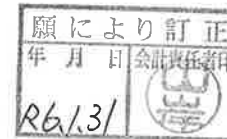 願により訂正
年月日 会計責任者印
R6.1.31